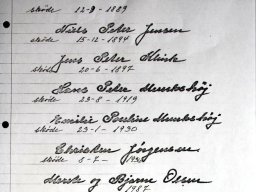 skøde 12-9-1889
Niels Peter Jensen
skøde 15-12-1894
Jens Peter Klink
skøde 20-6-1897
Hans Peter Munkshøj
skøde 23-8-1919
Emilie Pouline Munkshøj
skøde 23-1-1930
Christian Jørgensen
skøde 8-7-
Merete og Bjarne Olsen
1987